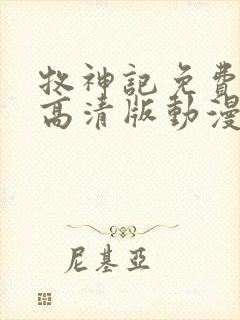 牧神記免費
高清版動漫
尼基亞